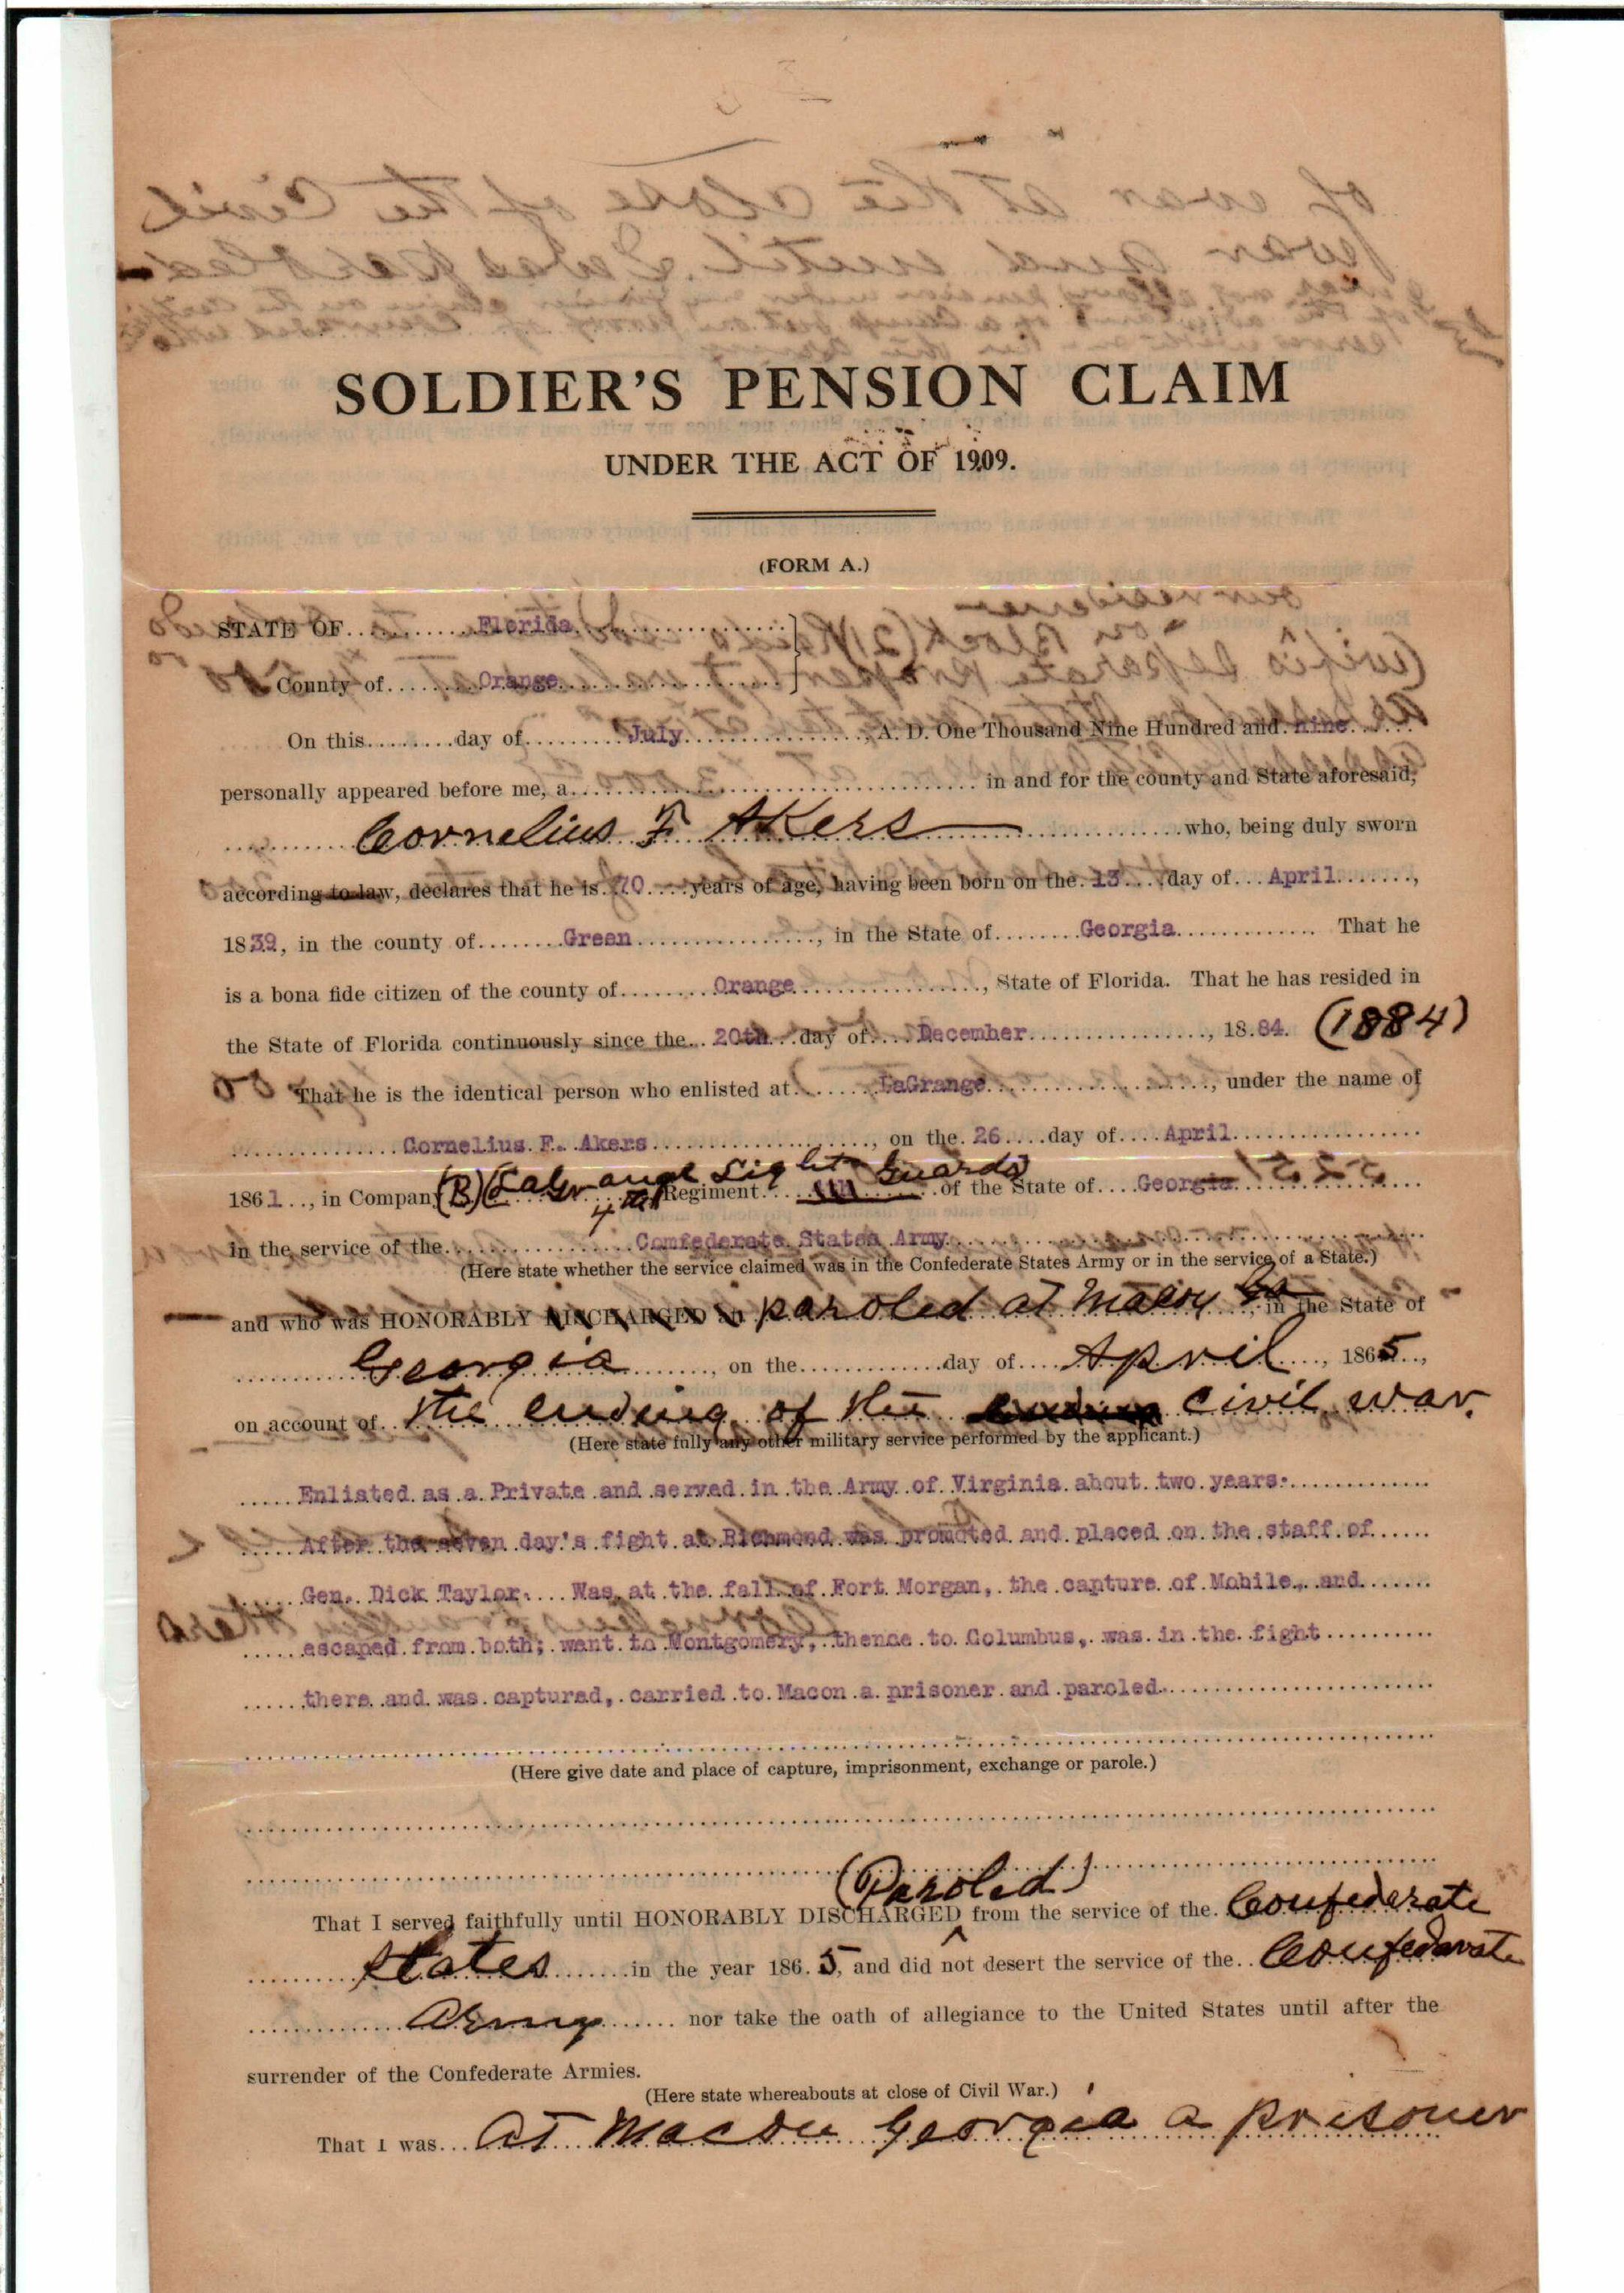 SOLDIER'S PENSION CLAIM
UNDER THE ACT OF 1909.
(FORM A.)
STATE OF Florida
County of Orange
On this day of July, A. D. One Thousand Nine Hundred and nine
personally appeared before me, a in and for the county and State aforesaid,
Cornelius F Akers who, being duly sworn
according to law, declares that he is 70 years of age, having been born on the 13 day of April,
1839, in the county of Green, in the State of Georgia. That he
is a bona fide citizen of the county of Orange, State of Florida. That he has resided in
the State of Florida continuously since the 20th day of December, 1884. (1884)
That he is the identical person who enlisted at LaGrange, under the name of
Cornelius F. Akers, on the 26 day of April
1861, in Company (B) (LaGrange Light Guards) 4th Regiment 4th of the State of Georgia
in the service of the Comfederate States Army
(Here state whether the service claimed was in the Confederate States Army or in the service of a State.)
and who was HONORABLY DISCHARGED at paroled at Macon Ga, in the State of
Georgia, on the day of April, 1865,
on account of the ending of the civil war.
(Here state fully any other military service performed by the applicant.)
Enlisted as a Private and served in the Army of Virginia about two years.
After the seven day's fight at Richmond was promoted and placed on the staff of
Gen. Dick Taylor. Was at the fall of Fort Morgan, the capture of Mobile, and
escaped from both; went to Montgomery, thence to Columbus, was in the fight
there and was captured, carried to Macon a prisoner and paroled.
(Here give date and place of capture, imprisonment, exchange or parole.)
(Paroled)
That I served faithfully until HONORABLY DISCHARGED from the service of the Confederate
States in the year 1865, and did not desert the service of the Confederate
Army nor take the oath of allegiance to the United States until after the
surrender of the Confederate Armies.
(Here state whereabouts at close of Civil War.)
That I was At Macon Georgia a prisoner